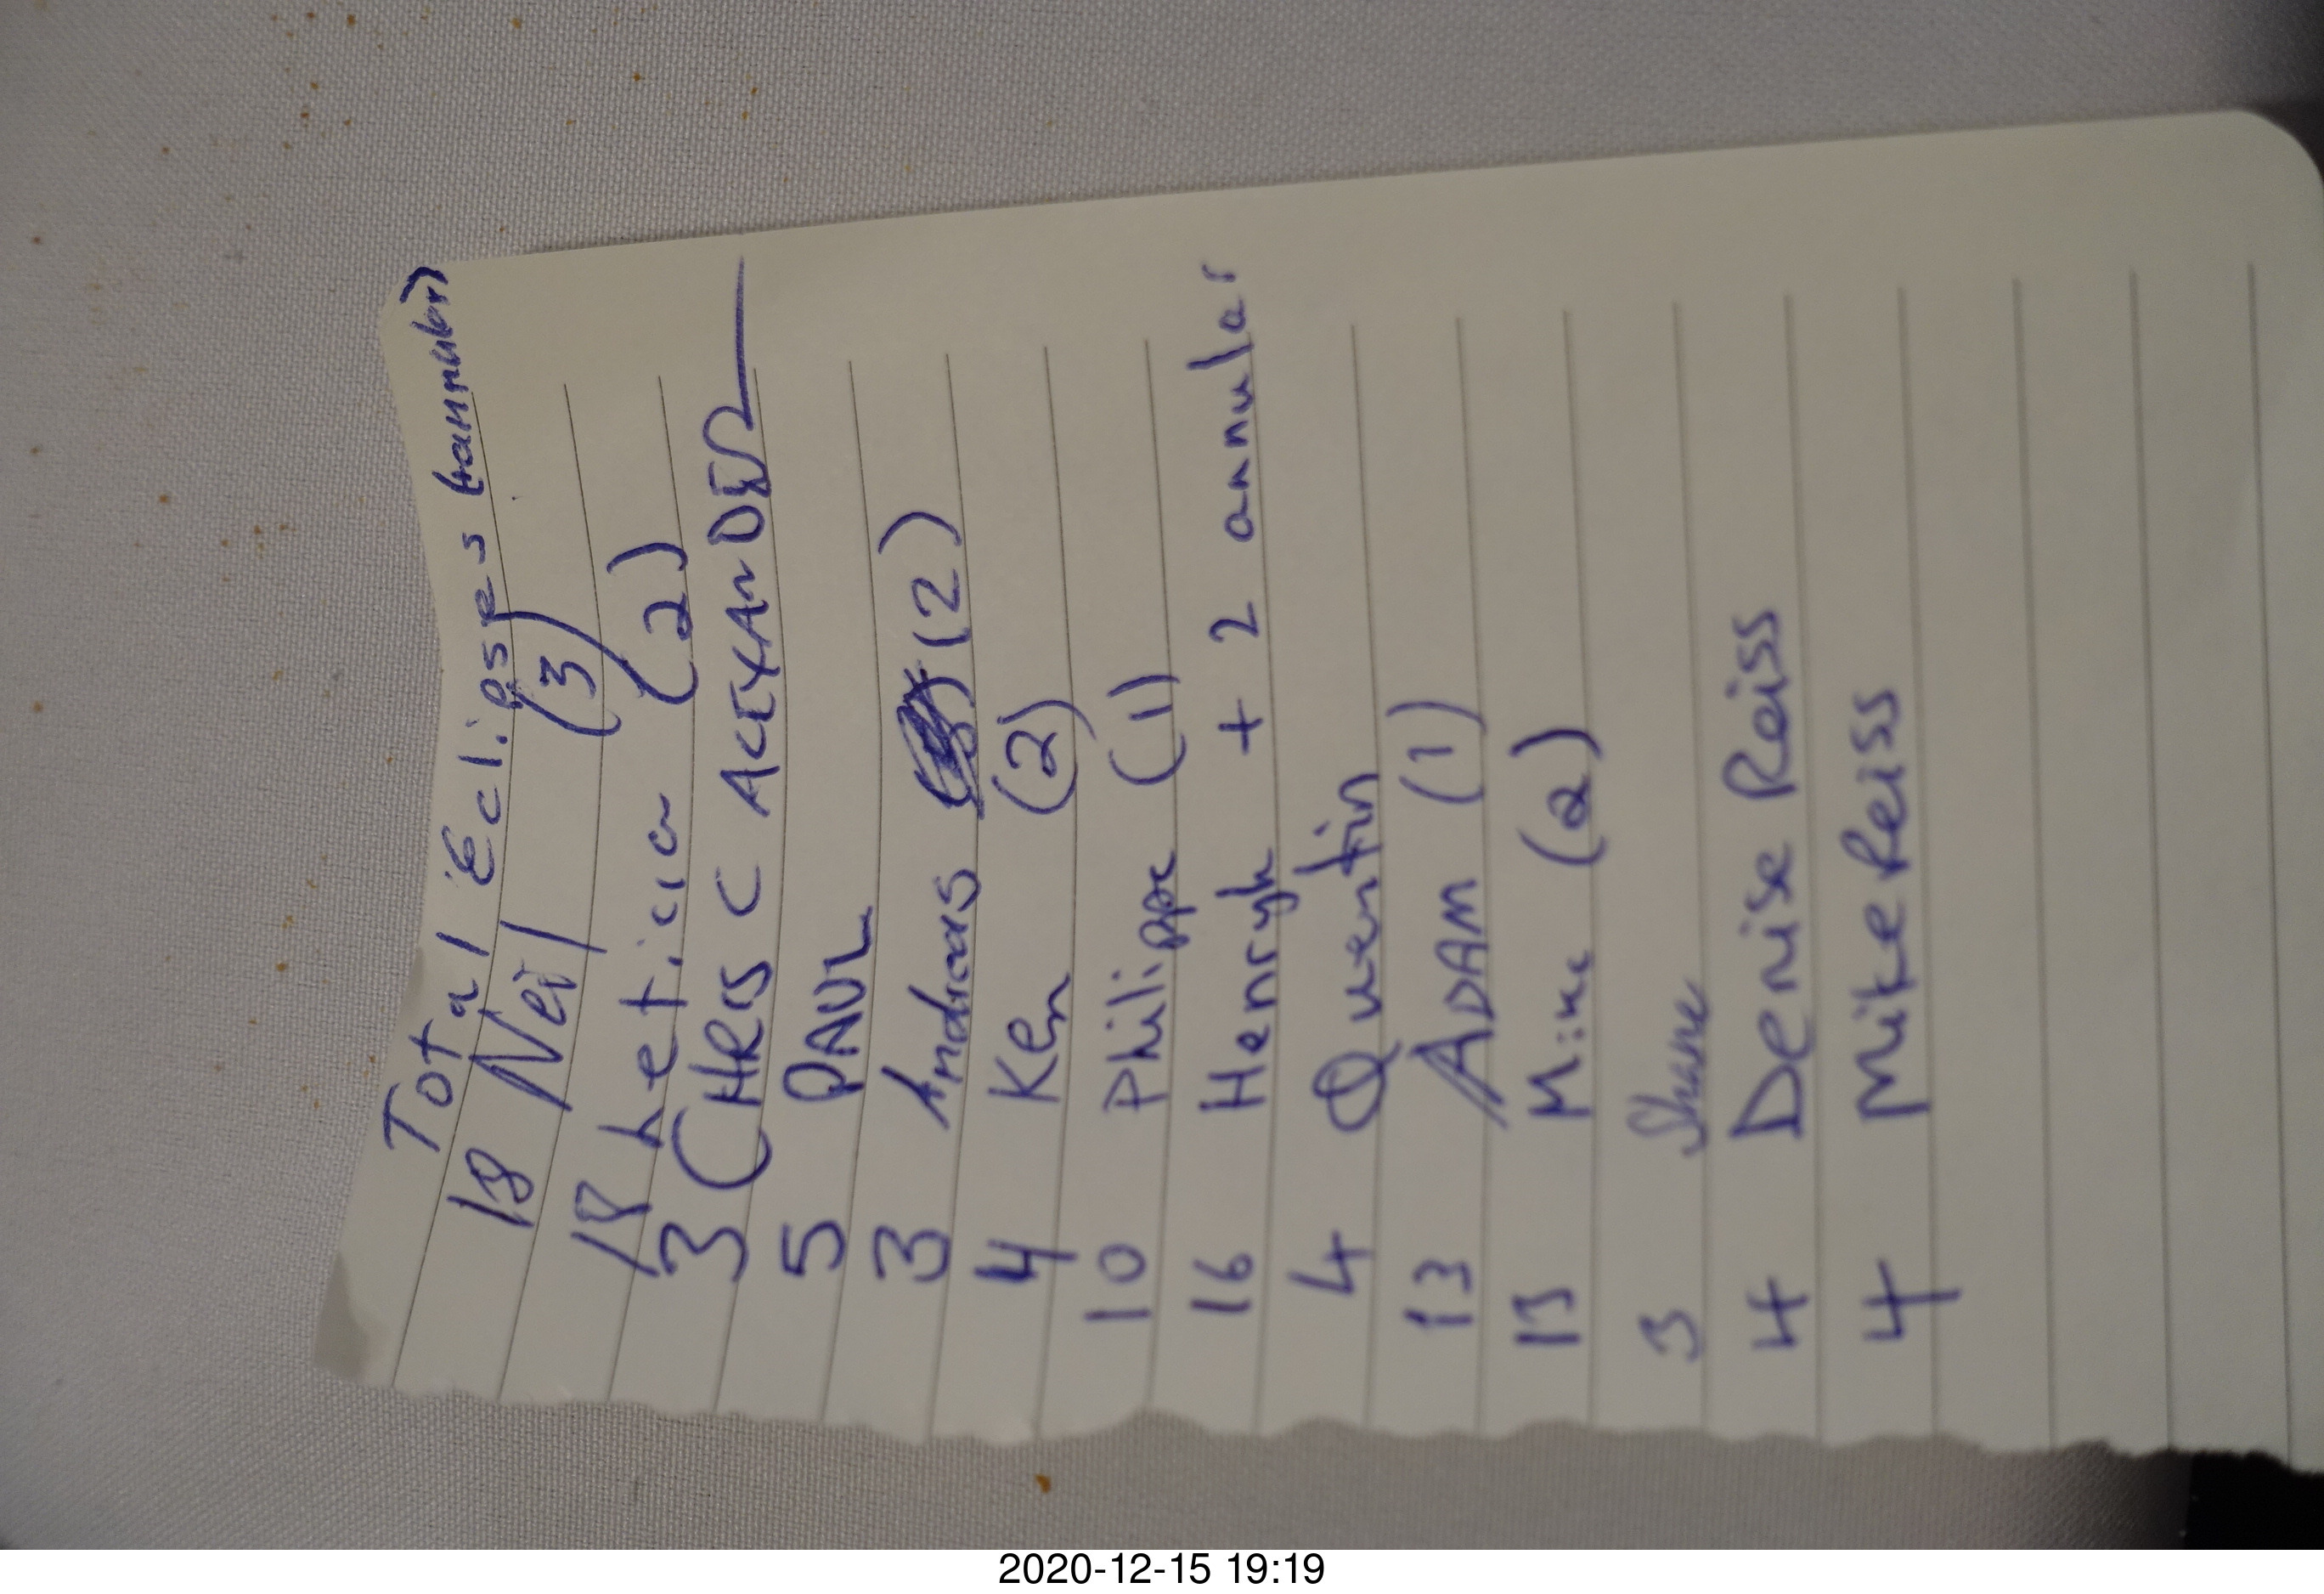 Total Eclipses (annular)
18 Neil (3)
18 Leticia (2)
3 CHRIS C ALEXANDER
5 PAUL
3 Andreas (2)
4 Ken (2)
10 Philippe (1)
16 Henryk + 2 annular
4 Quentin
13 ADAM (1)
13 Mike (2)
3 Shane
4 Denise Reiss
4 Mike Reiss
2020-12-15 19:19